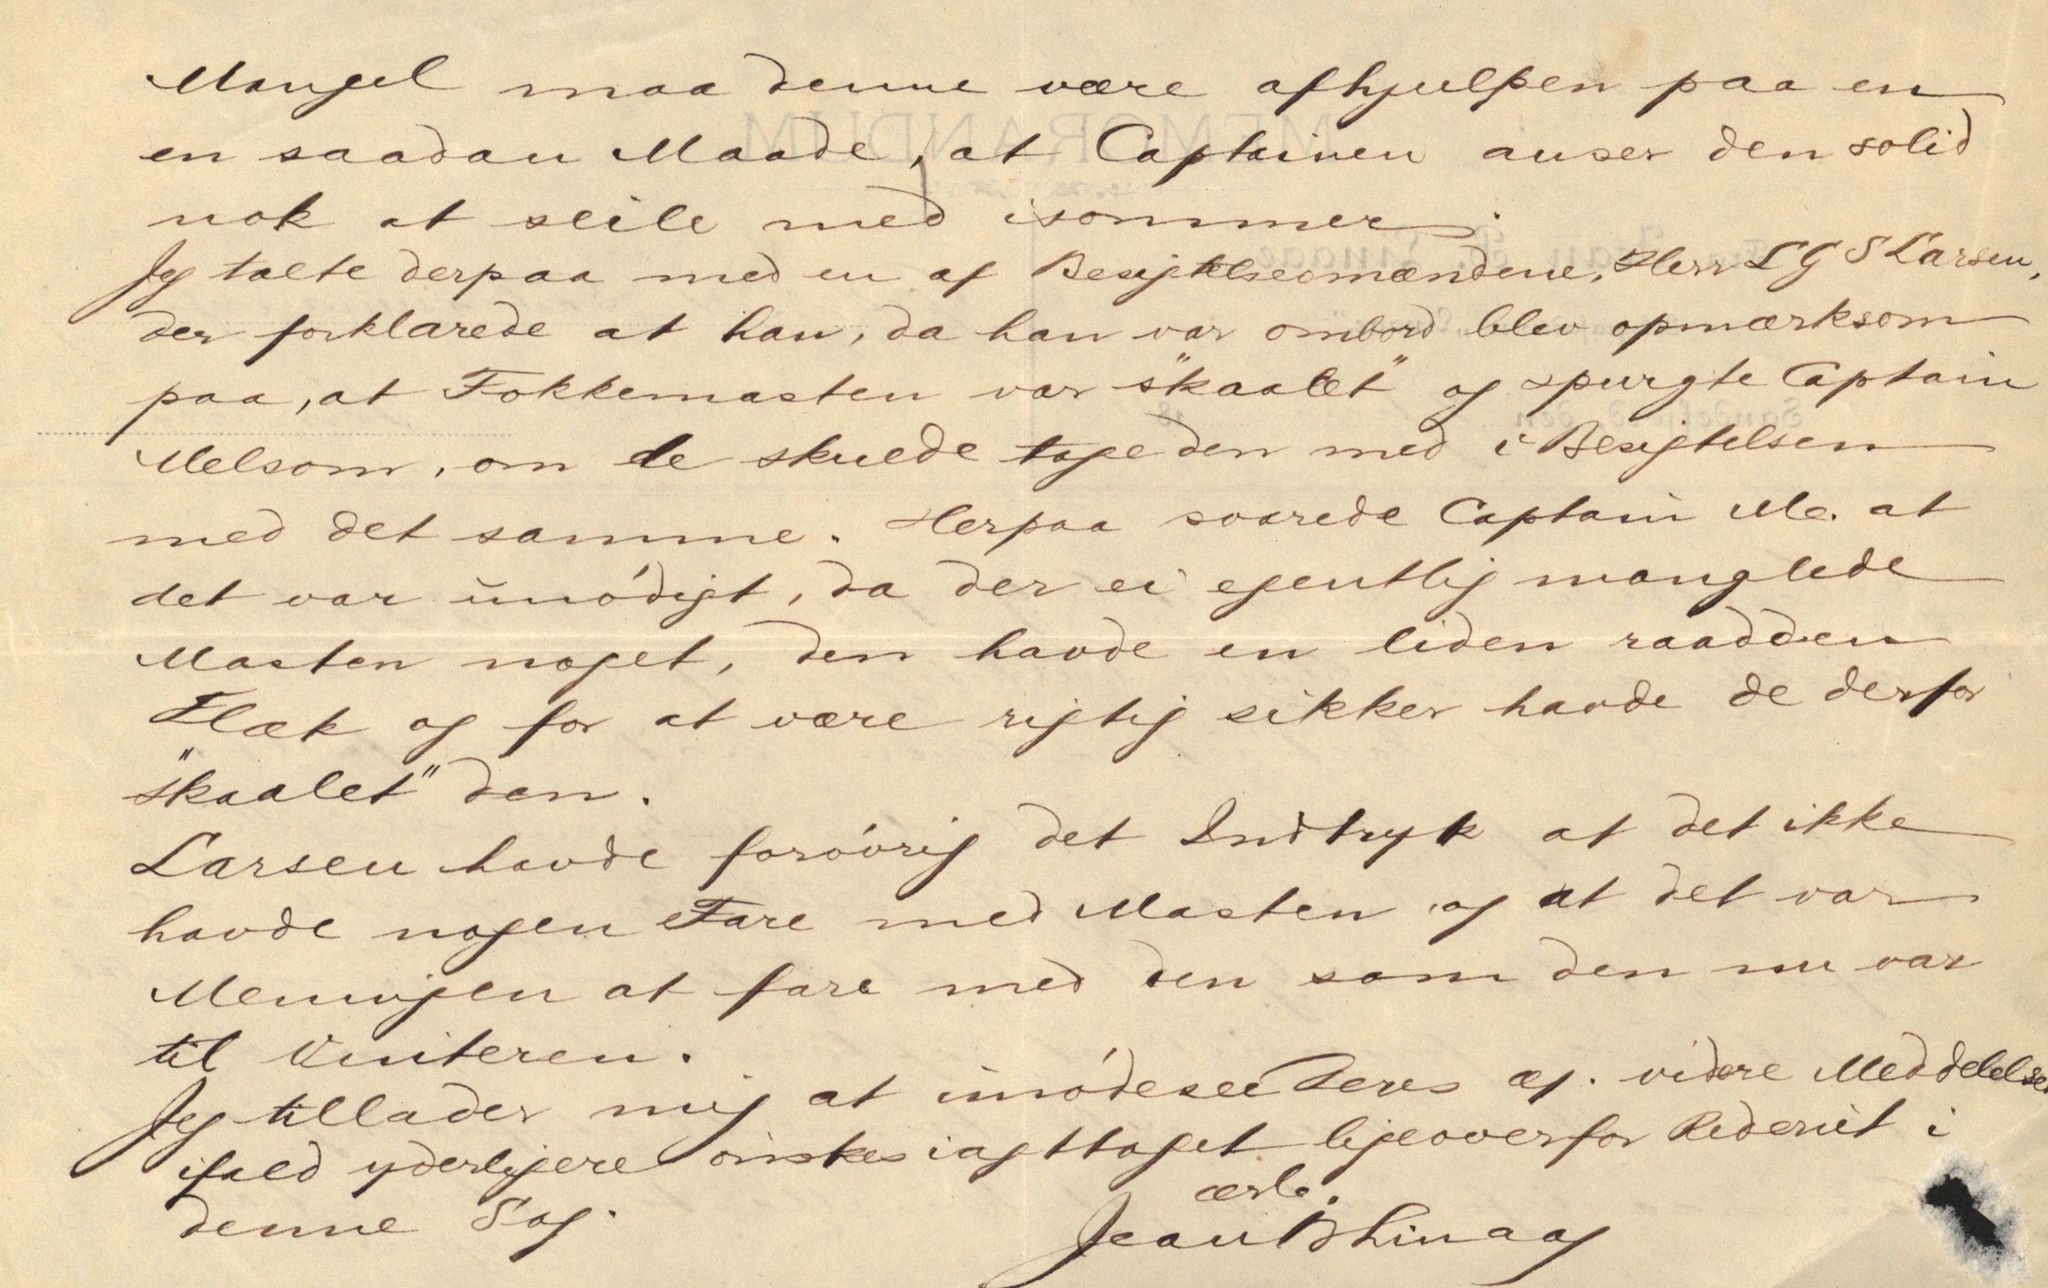 Mangel maa denne være afhjulpen paa en
en saadan Maade, at Captainen anser den solid
nok at seile med isommer.
Jeg talte derpaa med en af Besigtelsesmændene, Herr L G S Larsen,
der forklarede at han, da han var ombord blev opmærksom
paa, at Fokkemasten var "skaalet" og spurgte Captain
Melsom, om de skulde tage den med i Besigtelsen
med det samme. Herpaa svarede Captain Me. at
det var unódigt, da der ei egentlig manglede
Masten noget, den havde en liden raadden
Flæk og for at være rigtig sikker havde de derfor
"skaalet" den.
Larsen havde foróvrig det Indtryk at det ikke
havde nogen Fare med Masten og at det var
Meningen at fare med den som den nu var
til Vinteren.
Jeg tillader mig at imódesee Deres æ. videre Meddelelse
ifald yderligere ónskes iagttaget ligeoverfor Rederiet i
denne Sag.
ærb.
Jean B Linaae
MEMORANDUM
Sandefjord, den 18